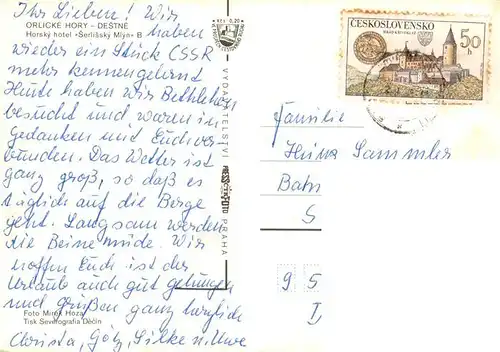 Ihr Lieben! Wir
ORLICKÉ HORY - DEŠTNÉ
Horský hotel »Šerlišský Mlýn« B
haben
wieder ein Stück CSSR
mehr kennengelernt
Heute haben wir Bethlehem
besucht und waren in
Gedanken mit Euch ver
bunden. Das Wetter ist
ganz groß, so daß es
täglich auf die Berge
geht. Langsam werden
die Beine müde. Wir
hoffen Euch ist der
Urlaub auch gut gelungen
und grüßen ganz herzlich
Foto Mirek Hoza
Tisk Severografia Děčín
Christa, Götz, Silke u. Uwe
Kčs 0,20
VYDAVATELSTVÍ PRESSFOTO PRAHA
ČESKOSLOVENSKO
50 h
Familie
Heinz Sammler
Bahn
S
9 5